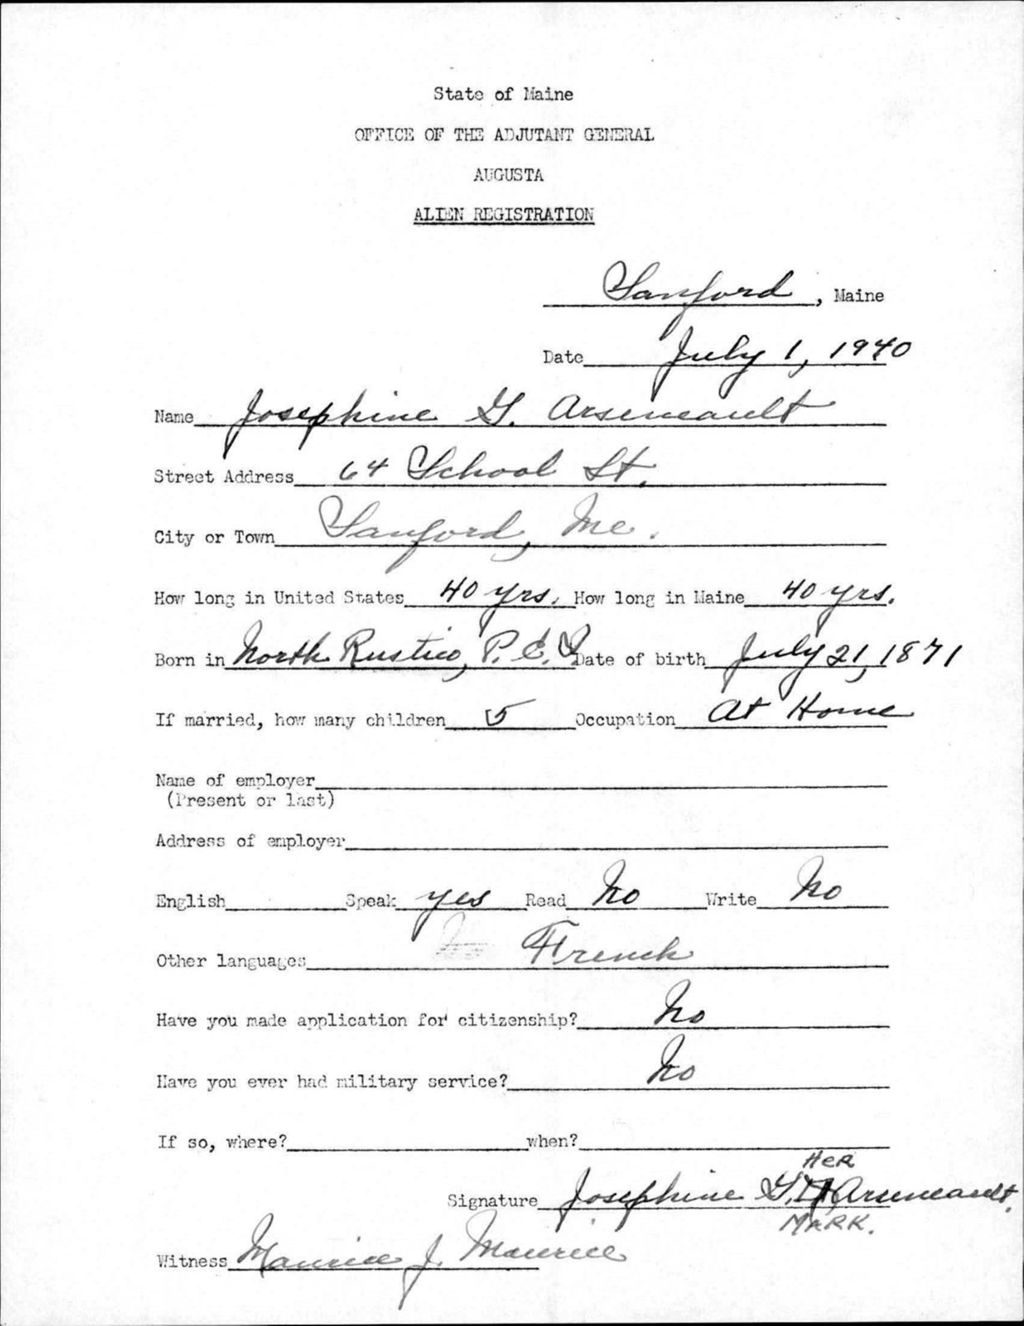 State of Maine
OFFICE OF THE ADJUTANT GENERAL
AUGUSTA
ALIEN REGISTRATION
Sanford, Maine
Date July 1, 1940
Name Josephine G. Arseneault
Street Address 64 School St.
City or Town Sanford, Me.
How long in United States 40 yrs. How long in Maine 40 yrs.
Born in North Rustico, P. E. I Date of birth July 21, 1871
If married, how many children 5 Occupation At Home
Name of employer
(Present or last)
Address of employer
English Speak yes Read No Write No
Other languages French
Have you made application for citizenship? No
Have you ever had military service? No
If so, where? when?
HER
Signature Josephine G. X Arseneault.
MARK.
Witness Maurice J. Maurice